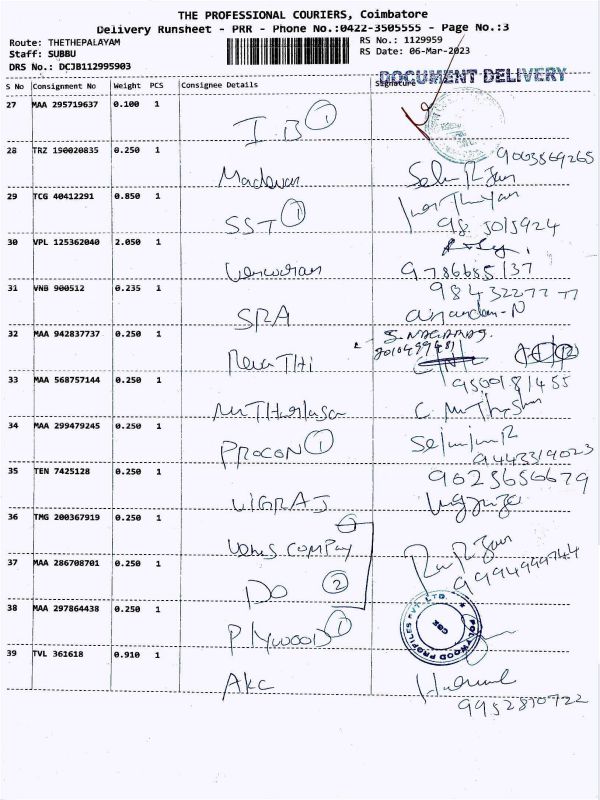 THE PROFESSIONAL COURIERS, Coimbatore
Delivery Runsheet - PRR - Phone No.:0422-3505555 - Page No.:3
Route: THETHEPALAYAM
RS No.: 1129959
Staff: SUBBU
RS Date: 06-Mar-2023
DRS No.: DCJB112995903
DOCUMENT DELIVERY
S No Consignment No Weight PCS Consignee Details Signature
27 MAA 295719637 0.100 1
I.B 1
28 TRZ 190020835 0.250 1
Madavan
29 TCG 40412291 0.850 1
SST 1
30 VPL 125362040 2.050 1
31 VNB 900512 0.235 1
9786685137
SRA
32 MAA 942837737 0.250 1
S. NAGARAJ
RevaTHi
33 MAA 568757144 0.250 1
9500181455
34 MAA 299479245 0.250 1
PROCON 1
9443319023
35 TEN 7425128 0.250 1
9025656679
VIGRAJ
36 TMG 200367919 0.250 1
Venus COMPay
37 MAA 286708701 0.250 1
Do 2
38 MAA 297864438 0.250 1
PlYWOOD 1
POLYWOOD PROFILES PVT. LTD. * CBE
39 TVL 361618 0.910 1
Akc